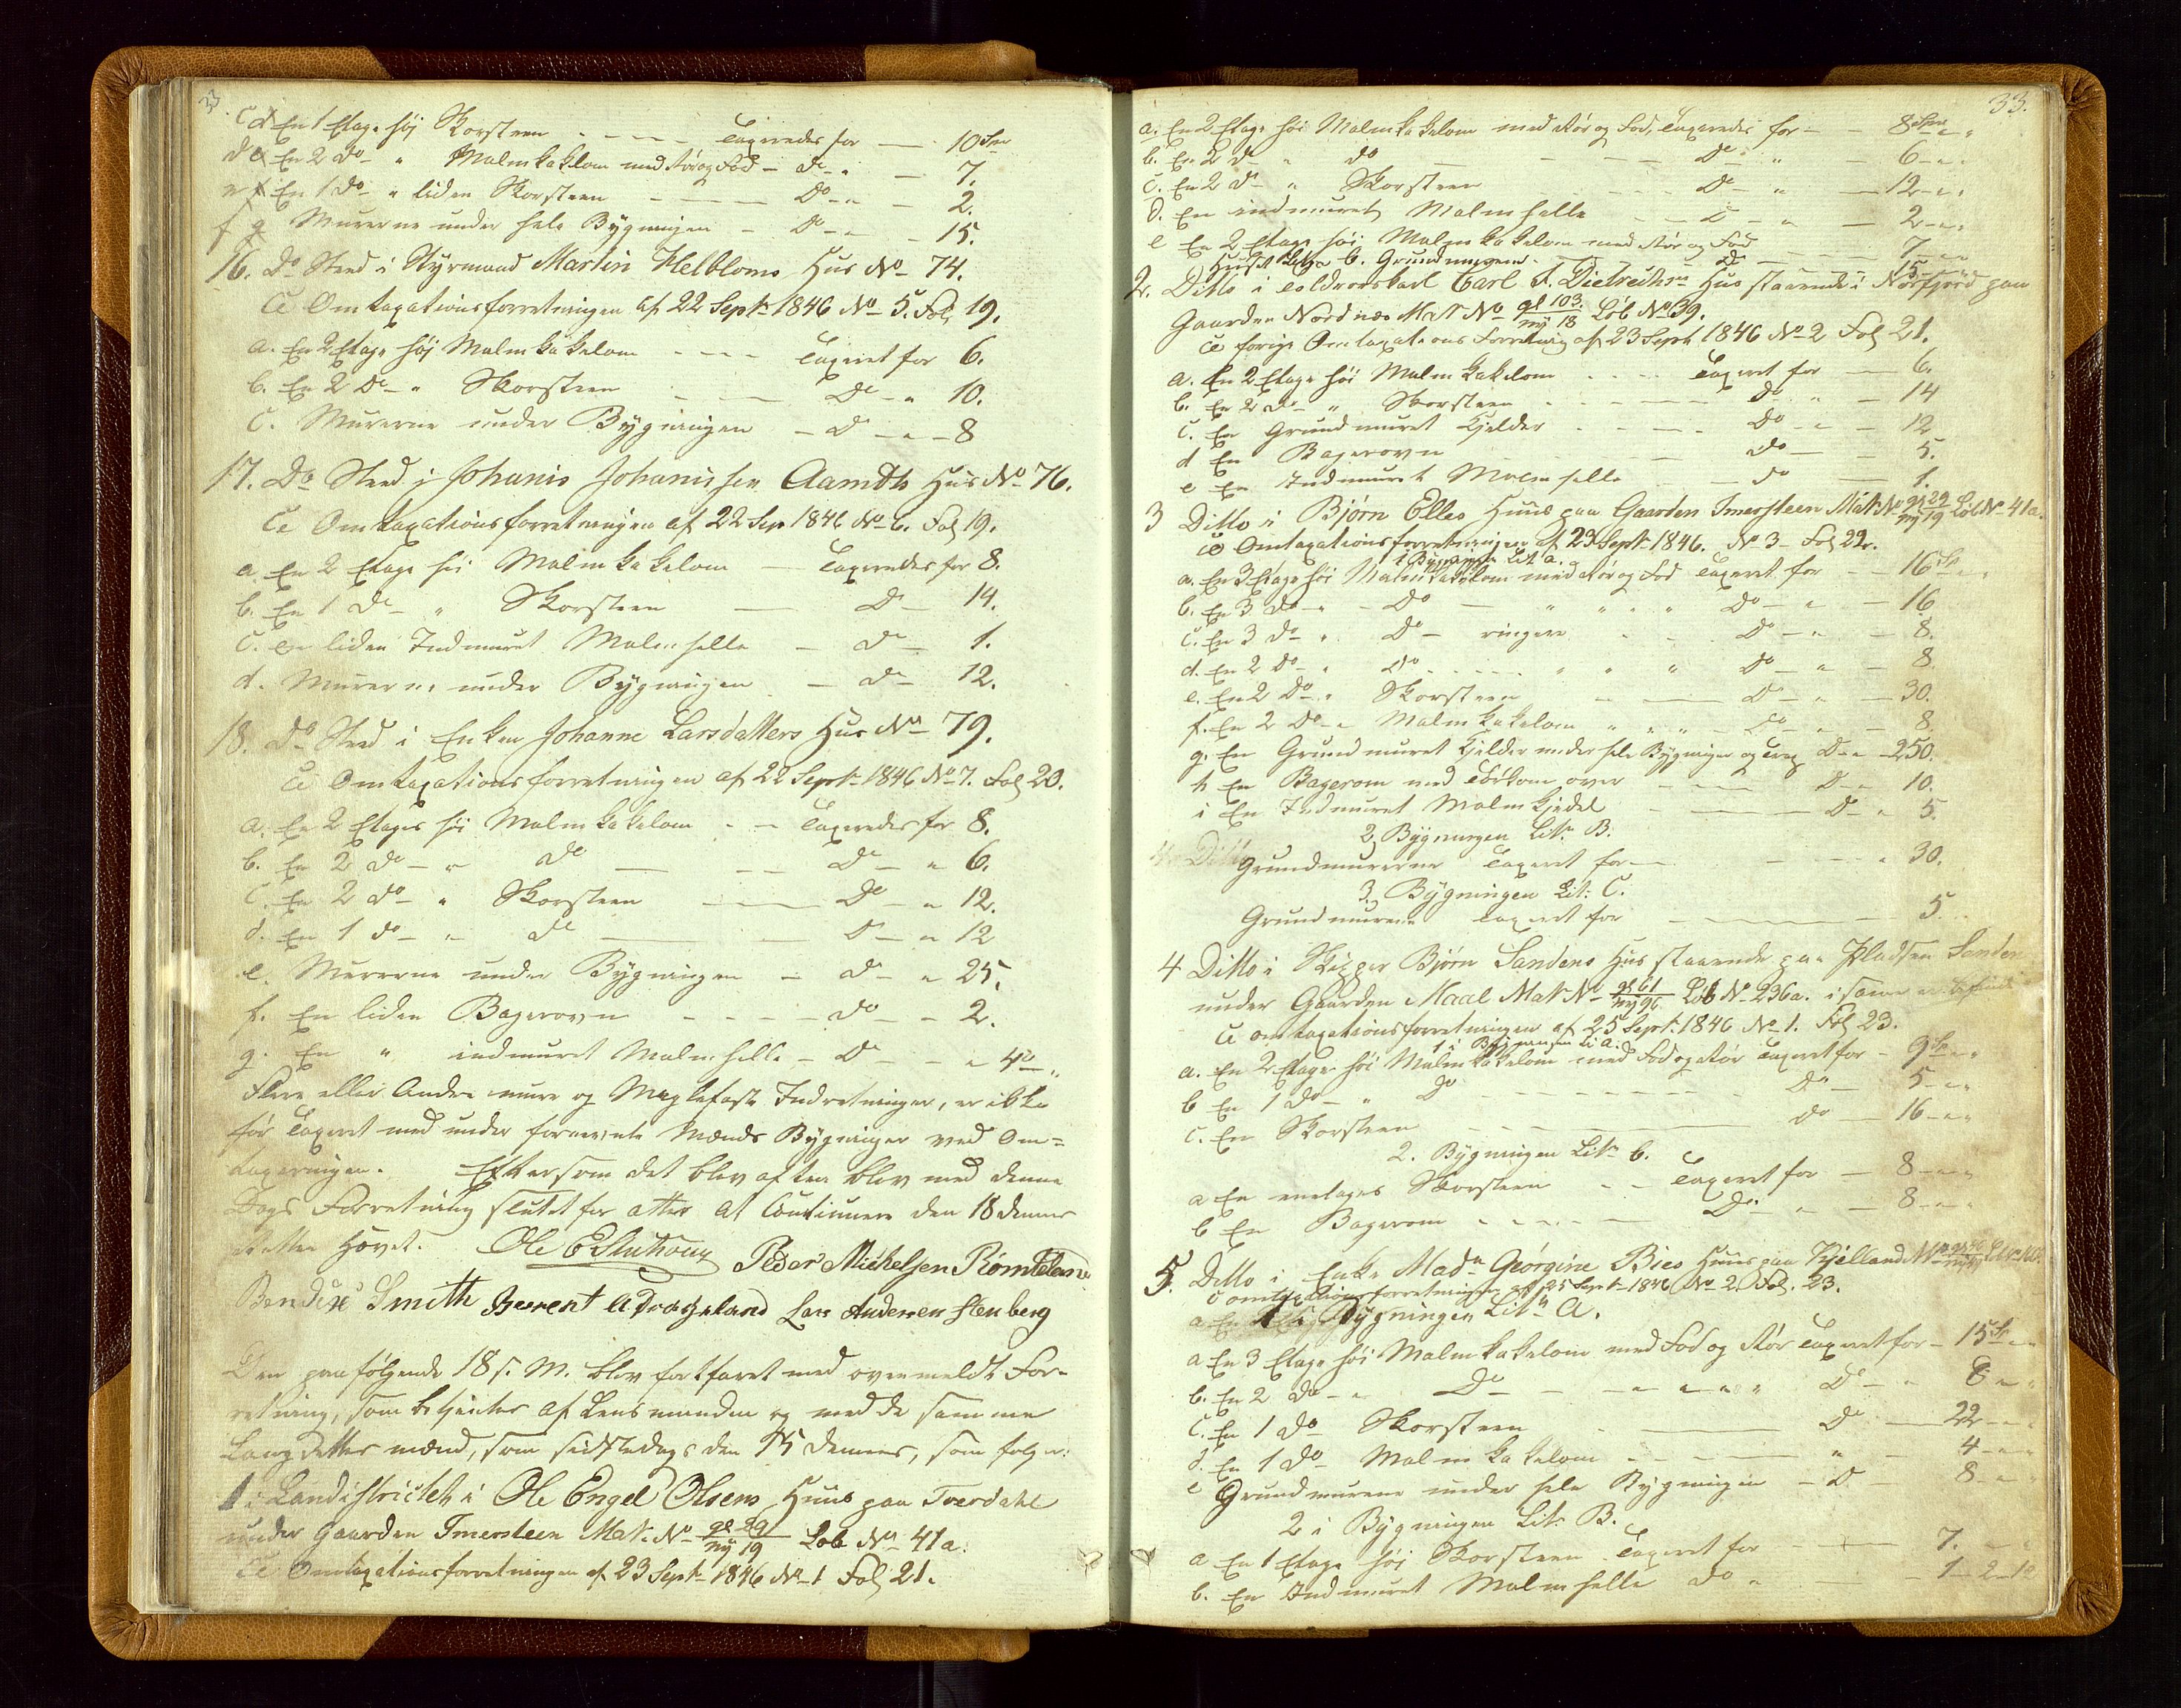 33.
c d En 1 Etage høj Skorsteen - - - - Taxeredes for — 10 Sp
d e En 2 Do - " Malmkakelovn med Rør og Fod - Do - " — 7.
e f En 1 Do - " liden Skorsteen - — — Do - " — 2.
f g Murerne under hele Bygningen - Do - " - 15.
16. Do Sted i Styrmand Martin Helbloms Hus No 74.
Cfr Omtaxationsforretningen af 22 Septr 1846 No 5. Fol 19.
a. En 2 Etage høj Malmkakelovn - - - - Taxeret for 6.
b. En 2 Do - " Skorsteen - — — Do - " 10.
c. Murerne under Bygningen - Do - " - 8
17. Do Sted i Johanis Johanissen Aamdts Hus No 76.
Cfr Omtaxationsforretningen af 22 Sep 1846 No 6. Fol 19.
a. En 2 Etage høi Malmkakelovn — Taxeredes for 8.
b. En 1 Do - " Skorsteen — Do - 14.
c. En liden Indmuret Malmhelle - Do - 1.
d. Murerne under Bygningen - Do - 12.
18. Do Sted i Enken Johanne Larsdatters Hus No 79.
Cfr Omtaxationsforretningen af 22 Septr 1846 No 7. Fol 20.
a. En 2 Etages høi Malmkakelovn - - Taxeredes for 8.
b. En 2 Do - " Do — — Do - " 6.
c. En 2 Do - " Skorsteen — Do - " 12.
d. En 1 Do - " Do — — Do - " 12
e. Murerne under Bygningen - Do - " 25.
f. En liden Bagerovn - - - - Do - - 2.
g. En " indmuret Malmhelle - Do - - " 4 "
Flere eller Andre mure og Maglefaste Indretninger, er ikke
før Taxeret med under fornevnte Mænds Bygninger ved Om=
taxeringen. Eftersom det blev aften blev med denne
Dags Forretning sluttet for atter at Continuere den 18 dennes
Ole E Knutsen Peder Michelsen Rømteland
Bendix Smith Berent A Drageland Lars Andersen Stenberg
Den paafølgende 18 s. M. blev fortfaret med ovenmeldt For-
retning, som betjentes af Lensmanden og med de samme
Laugrettes mænd, som sidstedags den 15 dennes, som følger:
1 i Landistrictet i Ole Engel Olsens Huus paa Tverdahl
under Gaarden Imersteen Mat. No gl 29/ny 19 Løb No 41a.
Cfr Omtaxationsforretningen af 23 Septr 1846 No 1 Fol 21.
33.
a. En 2 Etage høi Malmkakelovn med Rør og Fod, Taxeredes for - - 8 Spd "
b. En 2 Do " Do - - - - Do - " - 6 - " "
c. En 2 Do - " Skorsteen - - - - Do - " - 12 - " "
d. En indmuret Malmhelle - - Do - " - 2 - " "
e En 2 Etage høi Malmkakelovn med Rør og Fod 7 - "
Huset Litra b. Grundmurene - - Do - 15
2. Ditto i Carl F. Dietrechsns Hus staaende i Nørfjord paa
Gaarden Nordnæs Mat No gl 103./ny 18 Løb No 39.
Cfr forrige Omtaxations Forretning af 23 Septr 1846 No 2 Fol 21.
a. En 2 Etage høi Malmkakelovn - - - - Taxeret for — 6.
b. En 2 Do - " Skorsteen - - - - - Do " — 14
c. En Grundmuret Kjelder - - - - Do - " - 12
d En Bagerovn - - - Do — - 5.
e En Indmuret Malmhelle - - Do — 1.
3 Ditto i Bjørn Elles Huus paa Gaarden Imersteen Mat No gl 29/ny 19 Løb No 41a.
Cfr Omtaxationsforretningen af 23 Septr 1846. No 3 - Fol 22.
1 i Bygningen Lit a.
a. En 3 Etage høi Malmkakelovn med Rør og Fod Taxeret for — 16 Sp "
b. En 3 Do - " - Do — " " " " Do - " — 16
c. En 3 Do " Do - ringere - - Do - " — 8.
d. En 2 Do - " Do - - - - " " " Do - " - 8.
e. En 2 Do " Skorsteen - — Do - " — 30.
f. En 2 Do - " Malmkakelovn " " " - Do - " - 8
g. En Grundmuret Kjelder under hele Bygningen og Do - " - 250.
h En Bagerovn med over - - - - Do - " 10.
i En Indmuret Malmkjedel - — — Do - " 5.
2 Bygningen Litr B.
Grundmurerne Taxeret for — - - - " 30.
3. Bygningen Lit: C.
Grundmurene Taxeret for — 5.
4 Ditto i Skipper Bjørn Sandens Hus staaende paa Pladsen Sanden
under Gaarden Maal Mat No gl 61/ny 96 Løb No 236a. i
Cfr omtaxationsforretningen af 25 Septr 1846 No 1. Fol 23.
1 i Bygningen Lit A.
a. En 2 Etage høi Malmkakelovn med Fod og Rør Taxeret for - 9 Sp "
b En 1 Do - " Do - - - - - - - - Do - 5 - " "
c. En Skorsteen - — — Do — 16 - " "
2. Bygningen Litr b.
a En enetages Skorsteen - - Taxeret for — 8 - " "
b En Bagerovn - - - - - Do - " - 8 - " "
5. Ditto i Enke Madm Georgine Bies Huus paa Kjelland
Cfr omtaxationsforretningen af 25 Septr 1846 No 2 Fol. 23.
1 i Bygningen Litr A.
a En 3 Etage høi Malmkakelovn med Fod og Rør Taxeret for - 15 Sp "
b. En 2 Do - " Do - - " " " " Do - " 8 " "
c. En 1 Do Skorsteen - — Do — 22 - "
d. En 1 Do - Malmkakelovn - - — " - 4 - " "
e Grundmurene under hele Bygningen - Do 8 - " "
2 i Bygningen Litr B.
a En 1 Etage høi Skorsteen Taxeret for - — 7. " "
b. En Indmuret Malmhelle Do " - - 1 - 2 - 12